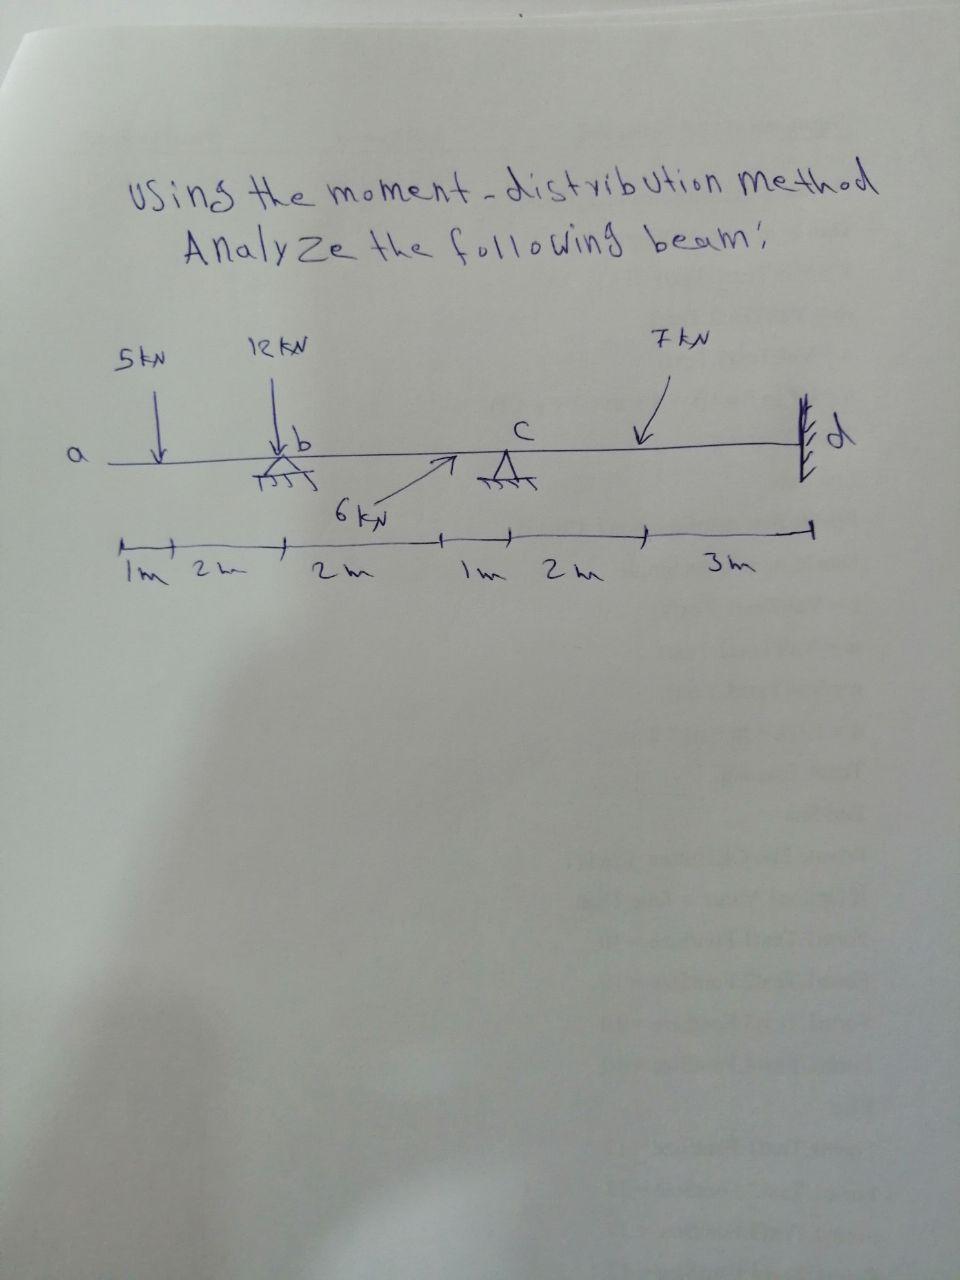 Using the moment-distribution method
Analyze the following beam:
5kN 12kN 7kN
a b c d
6kN
1m 2m 2m 1m 2m 3m